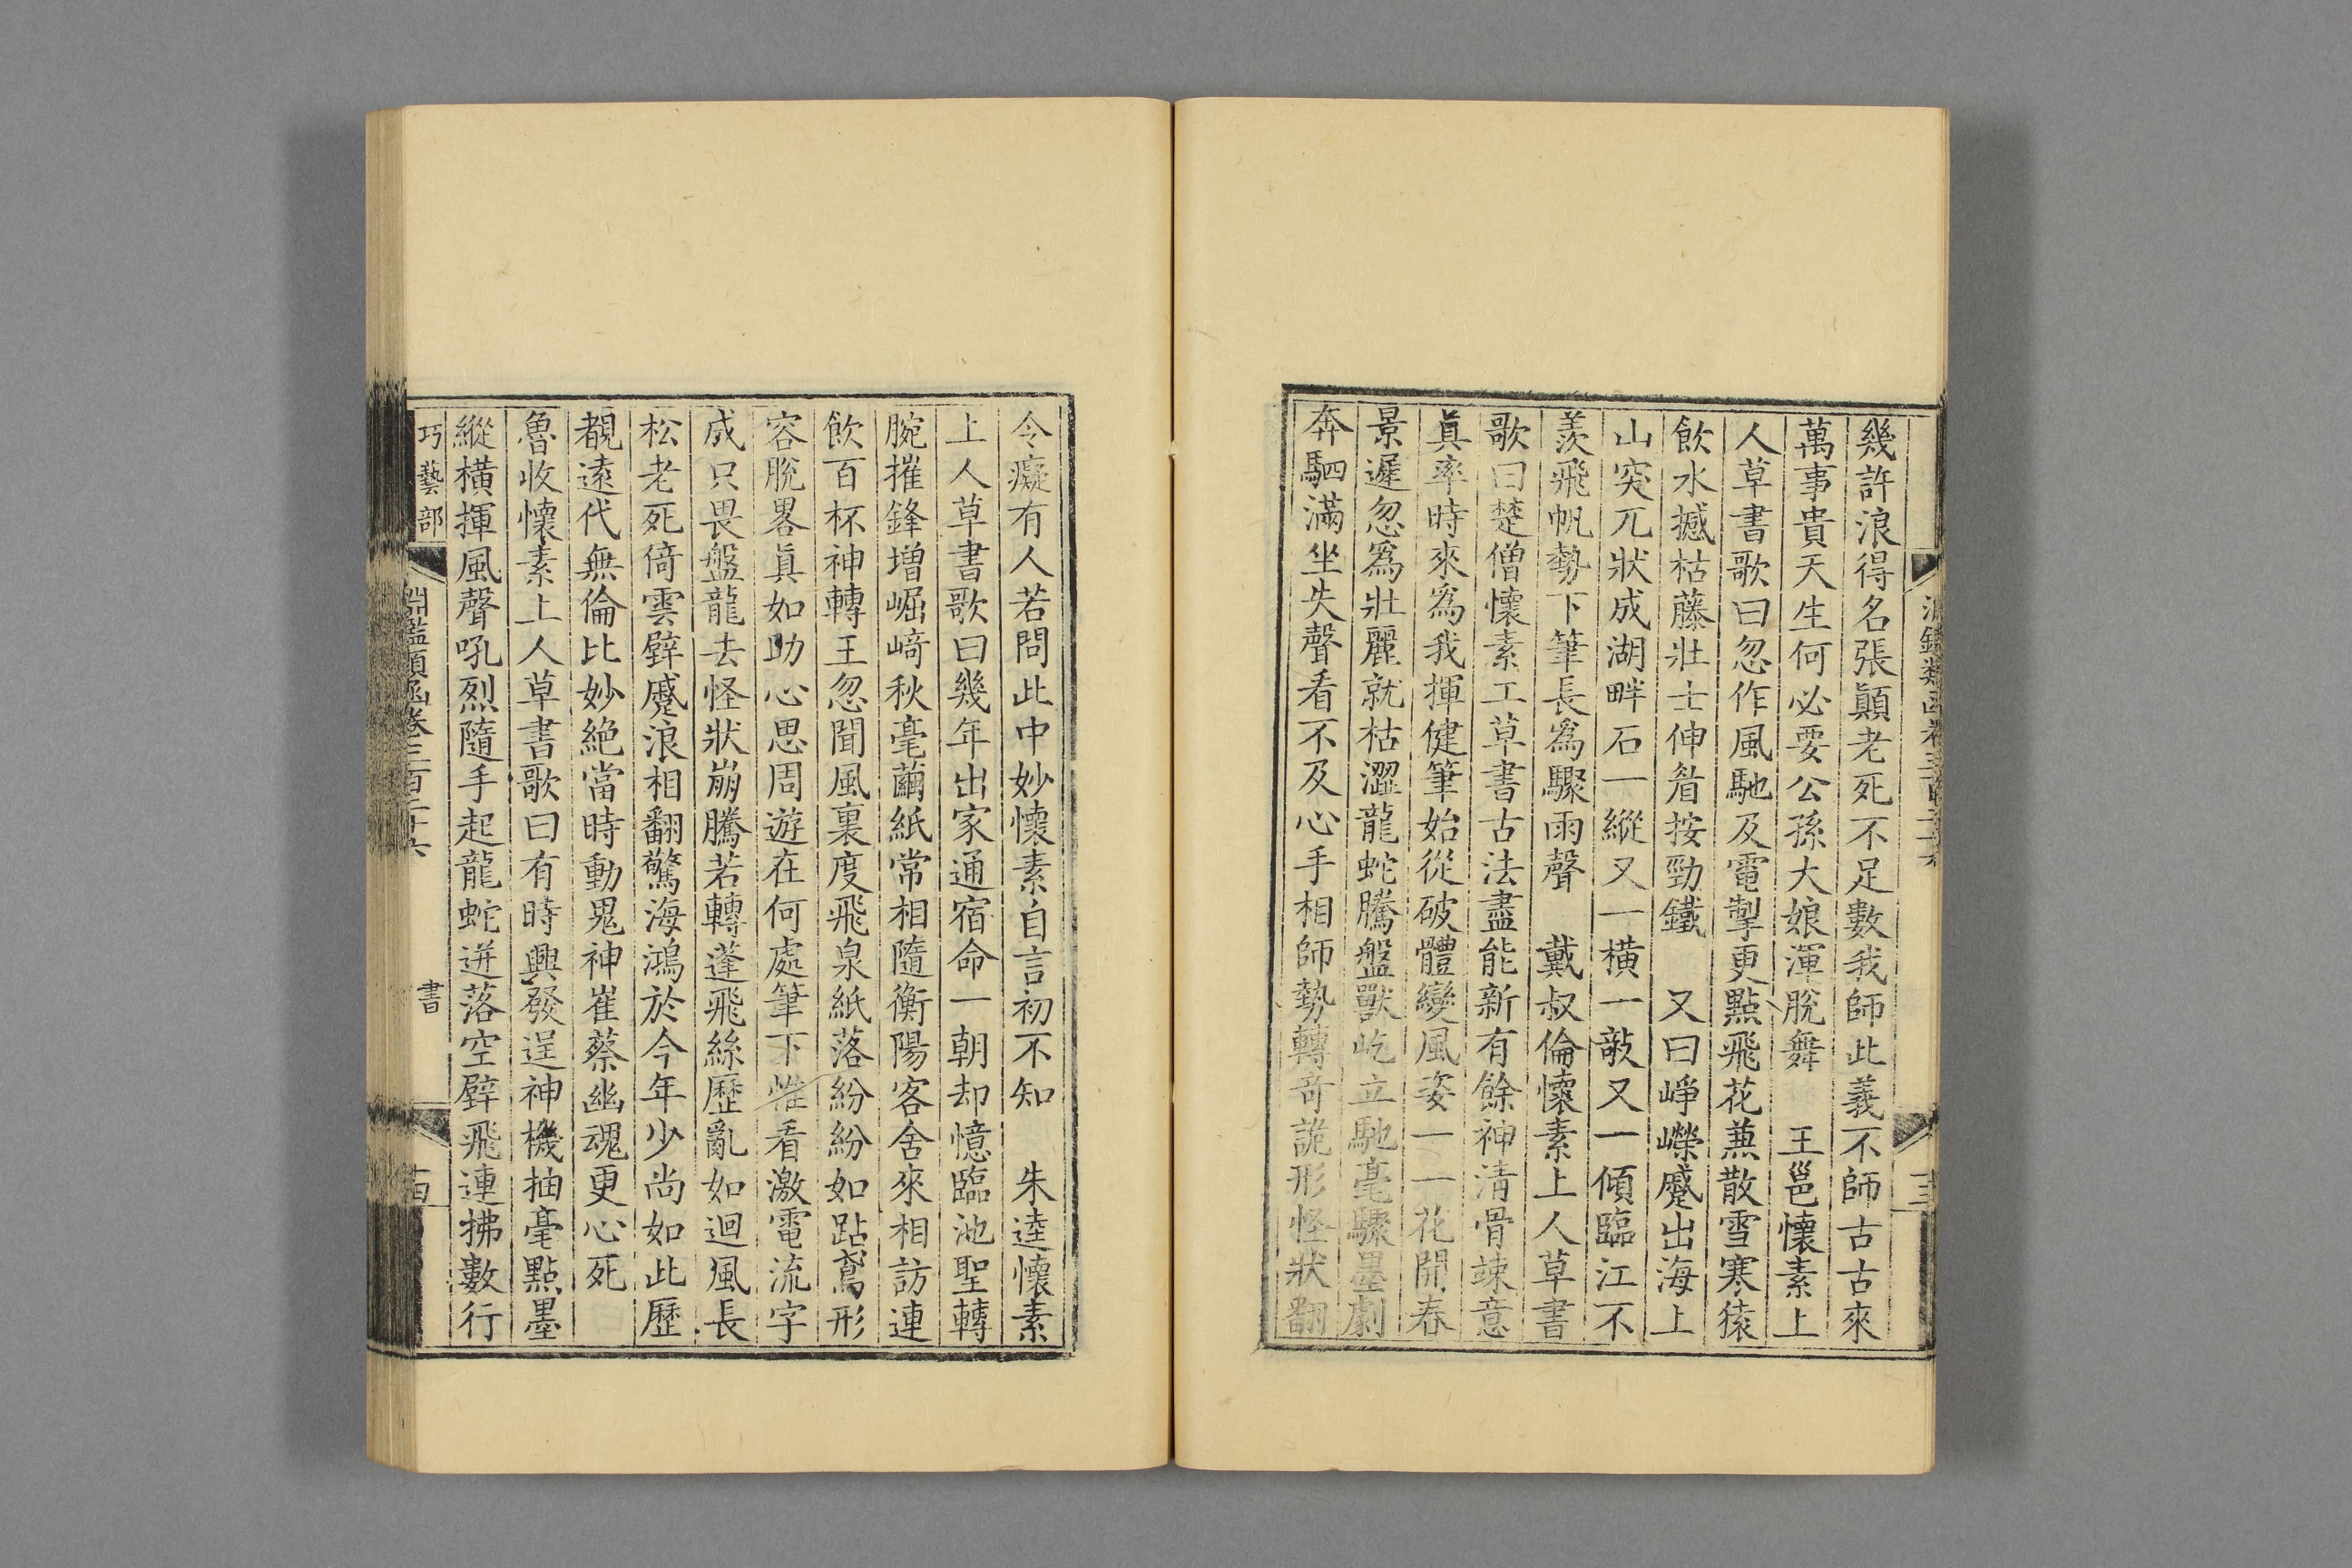 幾許浪得名張顛老死不足數我師此義不師古古來
萬事貴天生何必要公孫大娘渾脫舞　王邕懷素上
人草書歌曰忽作風馳及電掣更點飛花兼散雪寒猿
飲水撼枯藤壯士伸眉按勁鐵　又曰崢嶸蹙出海上
山突兀狀成湖畔石一縱又一橫一敧又一傾臨江不
羨飛帆勢下筆長爲驟雨聲　戴叔倫懷素上人草書
歌曰楚僧懷素工草書古法盡能新有餘神清骨竦意
眞率時來爲我揮健筆始從破體變風姿一一花開春
景遲忽爲壯麗就枯澀龍蛇騰盤獸屹立馳毫驟墨劇
奔駟滿坐失聲看不及心手相師勢轉奇詭形怪狀翻
令癡有人若問此中妙懷素自言初不知　朱逵懷素
上人草書歌曰幾年出家通宿命一朝却憶臨池聖轉
腕摧鋒增崛﨑秋毫繭紙常相隨衡陽客舍來相訪連
飲百杯神轉王忽聞風裏度飛泉紙落紛紛如跕鳶形
容脫畧眞如助心思周遊在何處筆下惟看激電流字
成只畏盤龍去怪狀崩騰若轉蓬飛絲歷亂如迴風長
松老死倚雲壁蹙浪相翻驚海鴻於今年少尚如此歷
覩遠代無倫比妙絶當時動鬼神崔蔡幽魂更心死
魯收懷素上人草書歌曰有時興發逞神機抽毫點墨
縱橫揮風聲吼烈隨手起龍蛇迸落空壁飛連拂數行
巧藝部　淵鑑類函卷三百二十六　書　十四